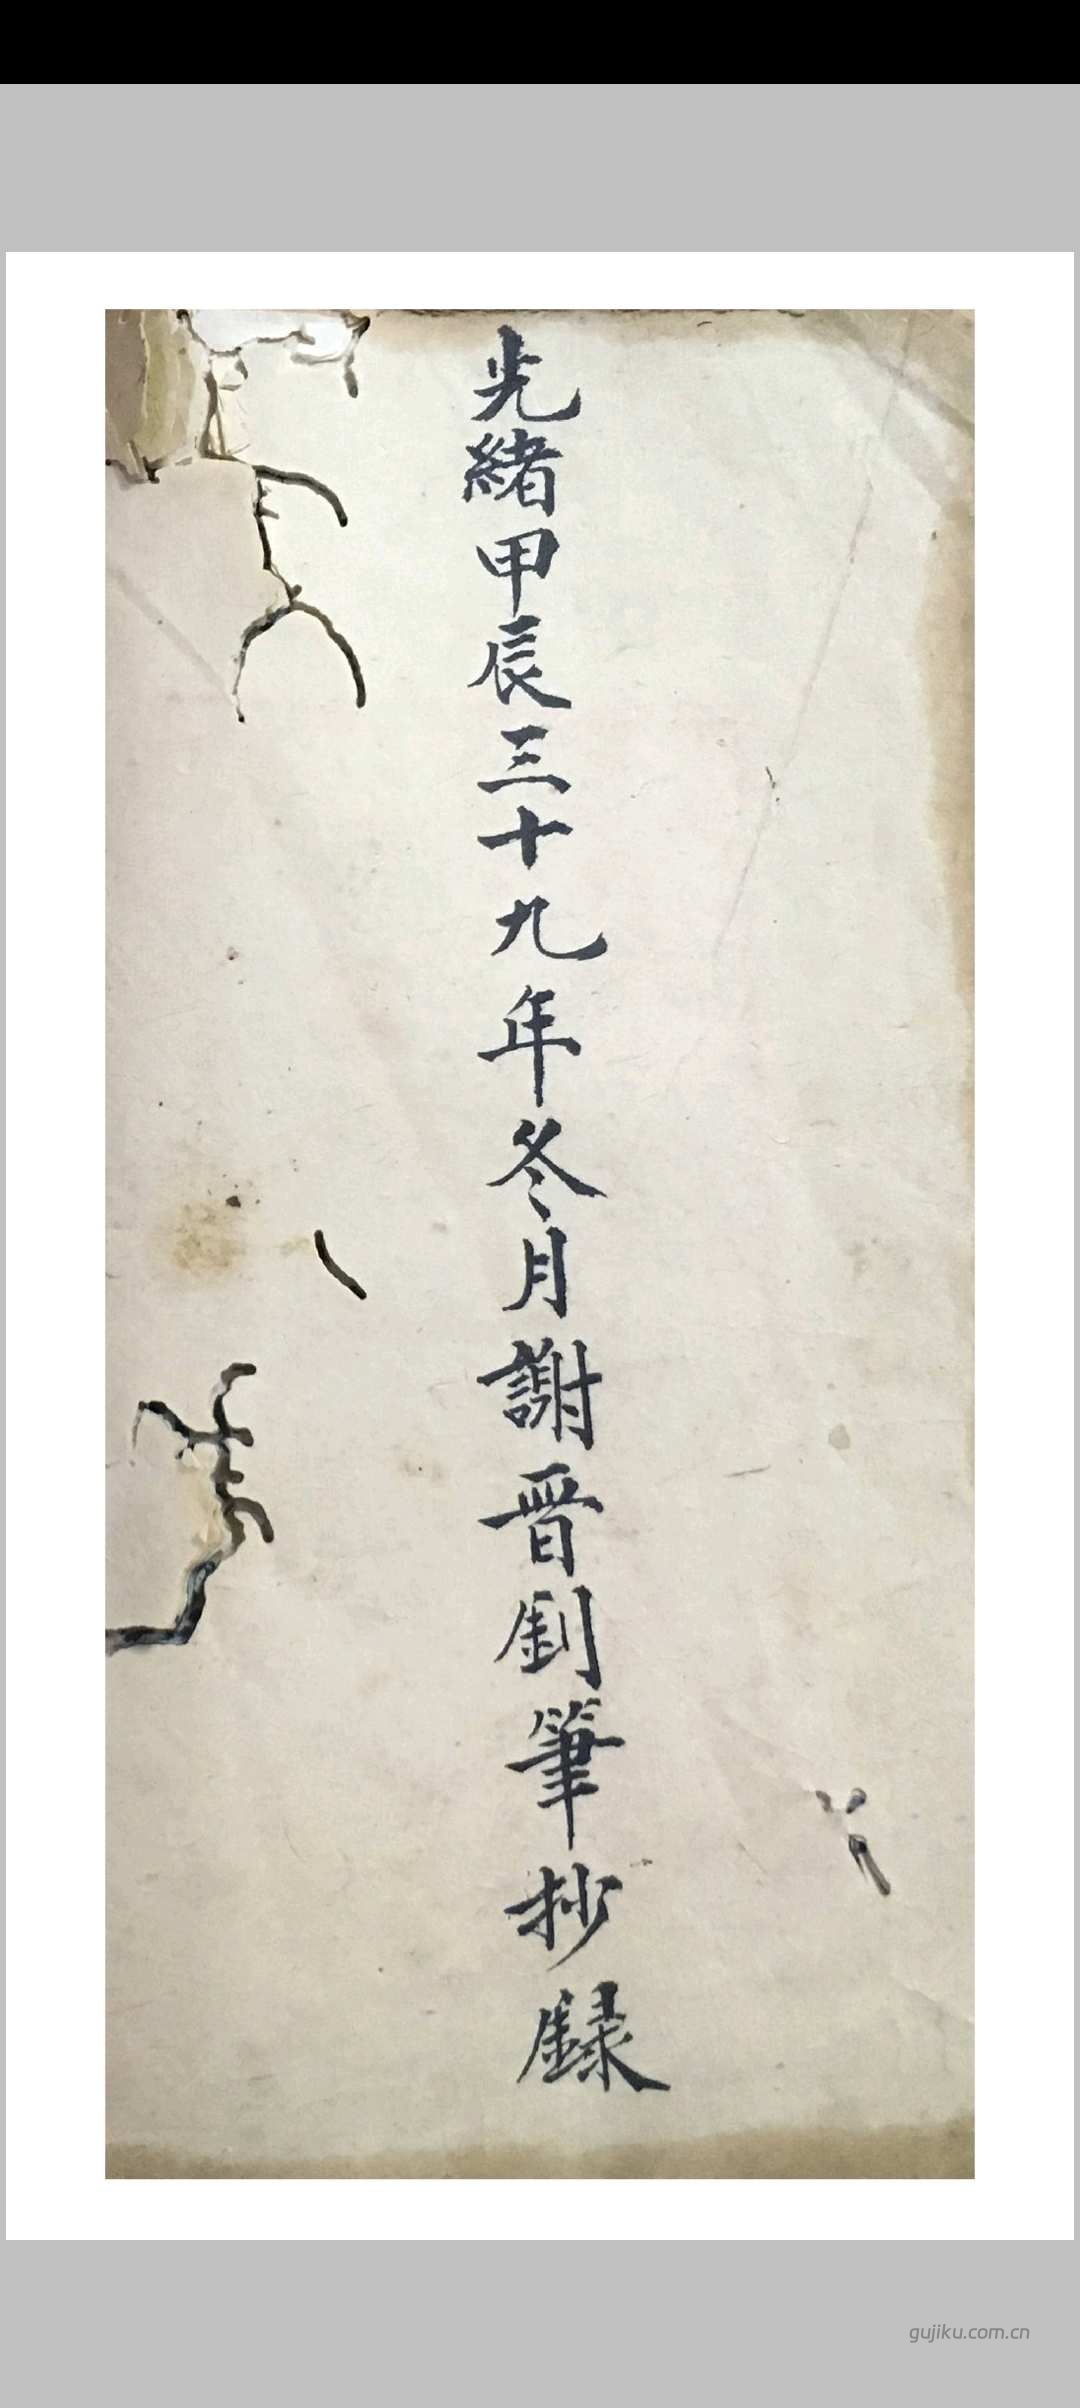 光緒甲辰三十九年冬月謝晋釗筆抄錄
gujiku.com.cn